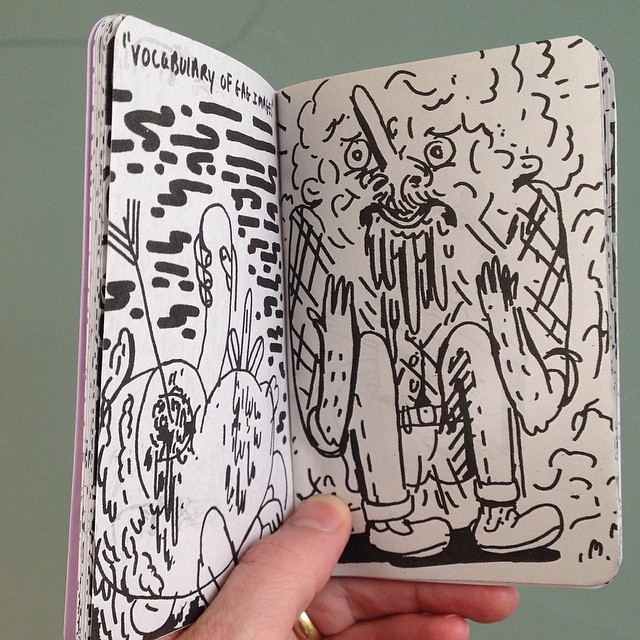 "VOCABULARY OF GAG IMAGES"